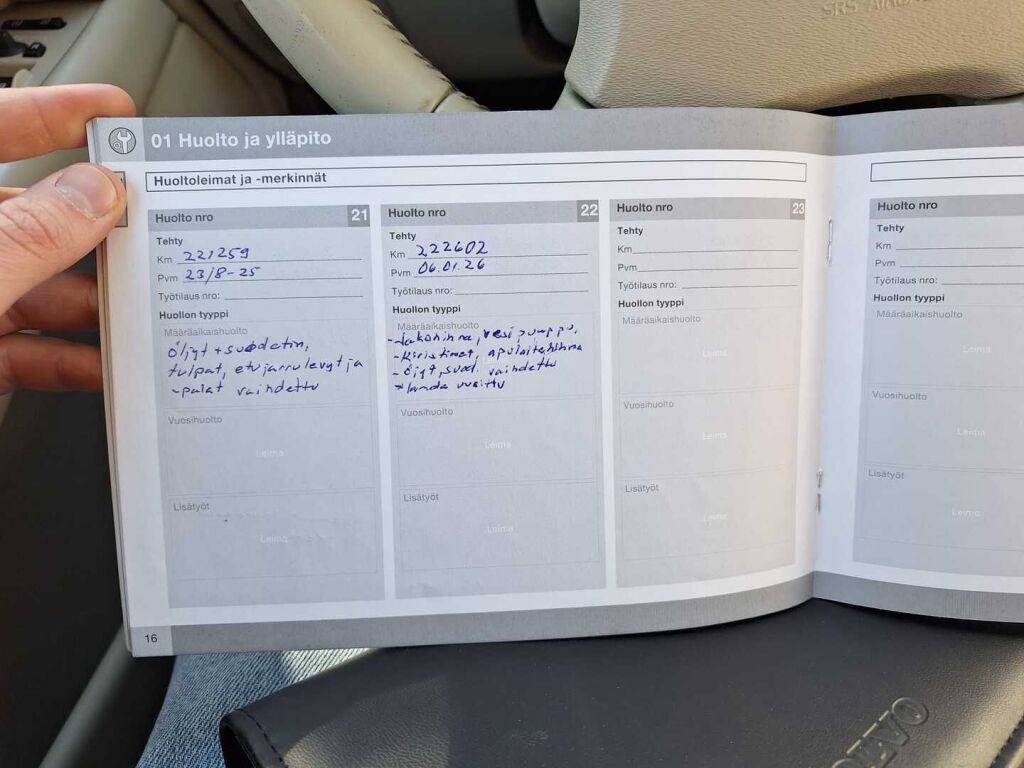 SRS AIRBAG
01 Huolto ja ylläpito
Huoltoleimat ja -merkinnät
Huolto nro 21
Tehty
Km 221259
Pvm 23/8-25
Työtilaus nro:
Huollon tyyppi
Määräaikaishuolto
Öljyt + suodatin,
tulpat, etujarrulevyt ja
-palat vaihdettu
Vuosihuolto
Leima
Lisätyöt
Leima
Huolto nro 22
Tehty
Km 222602
Pvm 06.01.26
Työtilaus nro:
Huollon tyyppi
Määräaikaishuolto
-Jakohihna, vesipumppu,
-Kiristimet, apulaitehihna
-Öljyt, suod. vaihdettu
Vuosihuolto
Leima
Lisätyöt
Leima
Huolto nro 23
Tehty
Km
Pvm
Työtilaus nro:
Huollon tyyppi
Määräaikaishuolto
Leima
Vuosihuolto
Leima
Lisätyöt
Leima
Huolto nro
Tehty
Km
Pvm
Työtilaus nro:
Huollon tyyppi
Määräaikaishuolto
Leima
Vuosihuolto
Leima
Lisätyöt
Leima
16
VOLVO